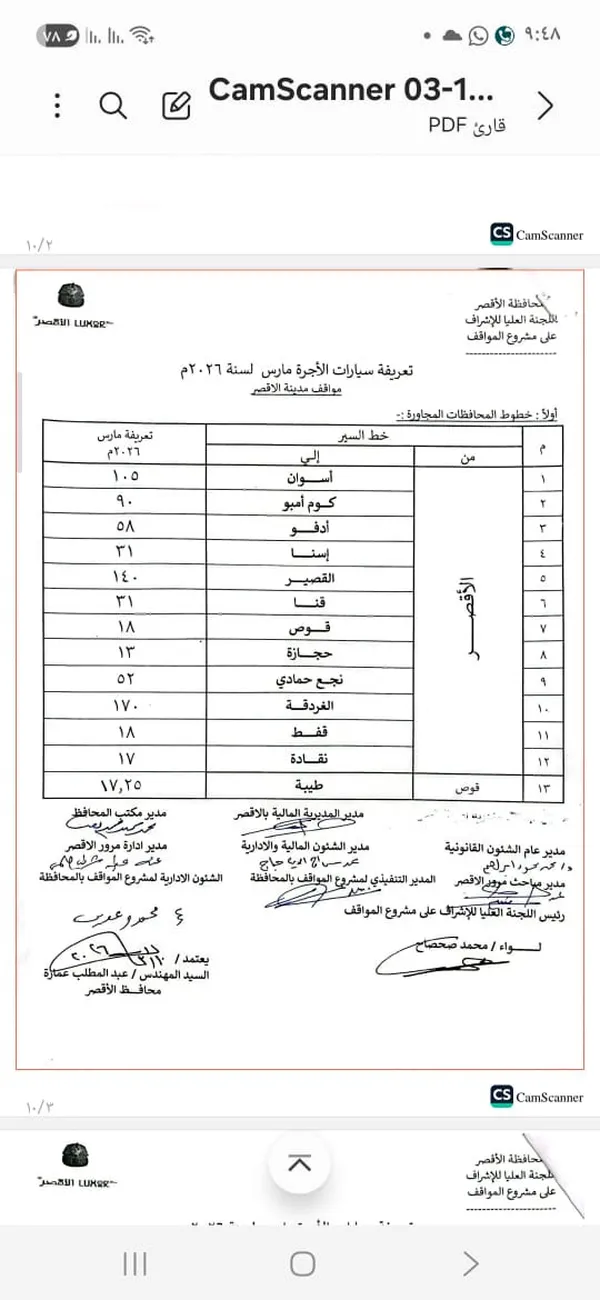 ٩:٤٨
٧٨
CamScanner 03-1...
قارئ PDF
١٠/٢
CS CamScanner
محافظة الأقصر
اللجنة العليا للإشراف
على مشروع المواقف
الأقصر LUXOR
تعريفة سيارات الأجرة مارس لسنة ٢٠٢٦م
مواقف مدينة الاقصر
أولاً : خطوط المحافظات المجاورة :-
م خط السير تعريفة مارس ٢٠٢٦م
من إلي
الأقصر
١ أسوان ١٠٥
٢ كوم أمبو ٩٠
٣ أدفو ٥٨
٤ إسنا ٣١
٥ القصير ١٤٠
٦ قنا ٣١
٧ قوص ١٨
٨ حجازة ١٣
٩ نجع حمادي ٥٢
١٠ الغردقة ١٧٠
١١ قفط ١٨
١٢ نقادة ١٧
١٣ قوص طيبة ١٧,٢٥
مدير المديرية المالية بالاقصر مدير مكتب المحافظ
مدير عام الشئون القانونية مدير الشئون المالية والادارية مدير ادارة مرور الاقصر
مدير مباحث مرور الاقصر المدير التنفيذي لمشروع المواقف بالمحافظة الشئون الادارية لمشروع المواقف بالمحافظة
رئيس اللجنة العليا للإشراف على مشروع المواقف
لواء / محمد صحصاح
يعتمد /
السيد المهندس / عبد المطلب عمارة
محافظ الأقصر
١٠/٣
CS CamScanner
محافظة الأقصر
اللجنة العليا للإشراف
على مشروع المواقف
الأقصر LUXOR